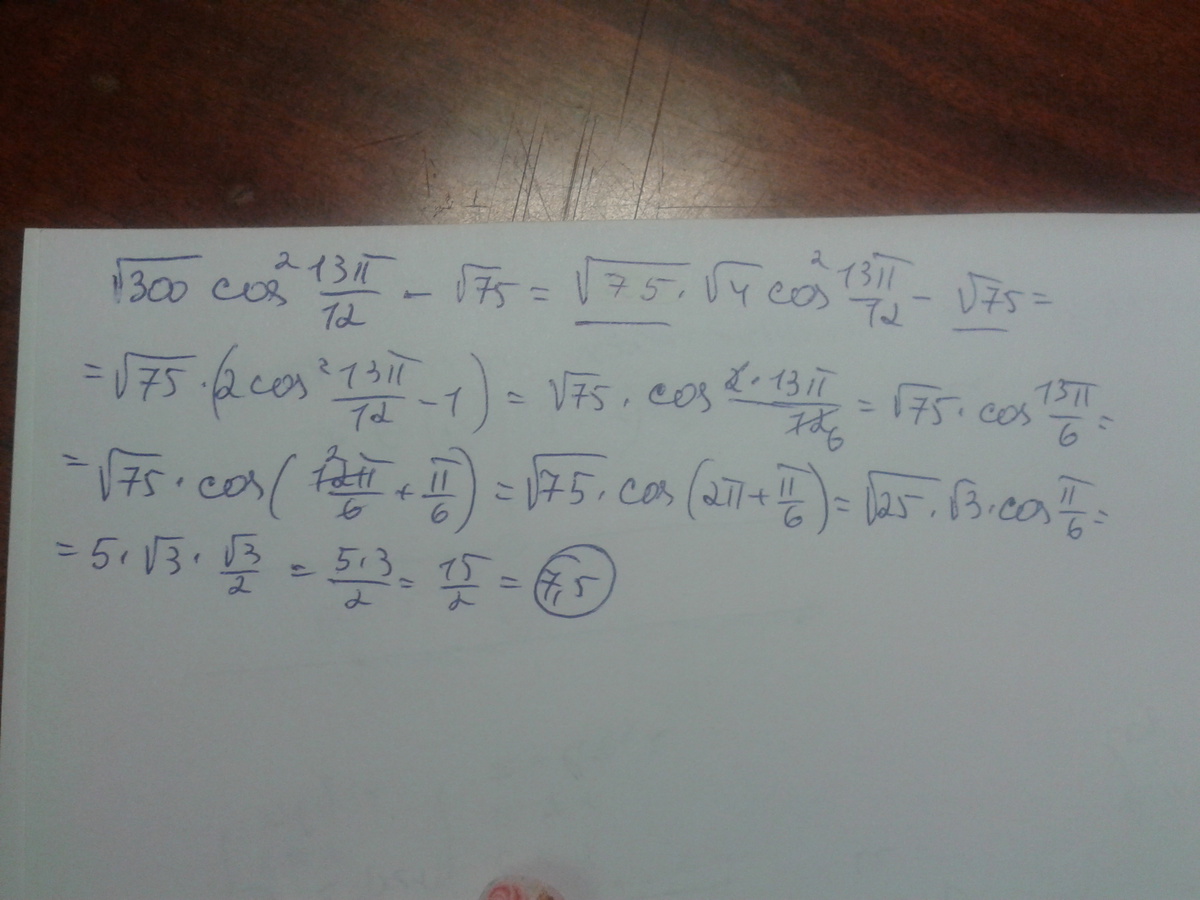 √300 cos² 13π/12 - √75 = √75 · √4 cos² 13π/12 - √75 =
= √75 · (2cos² 13π/12 - 1) = √75 · cos 2·13π/12 6 = √75 · cos 13π/6 =
= √75 · cos(12π/6 2 + π/6) = √75 · cos(2π + π/6) = √25 · √3 · cos π/6 =
= 5 · √3 · √3/2 = 5·3/2 = 15/2 = 7,5